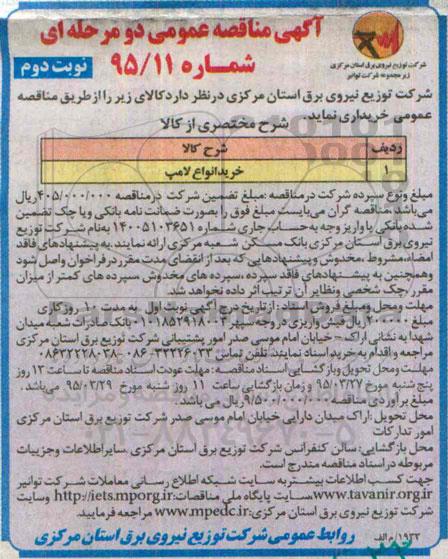 آگهی مناقصه عمومی دو مرحله ای
شماره ۹۵/۱۱
نوبت دوم
شرکت توزیع نیروی برق استان مرکزی
زیر مجموعه شرکت توانیر
شرکت توزیع نیروی برق استان مرکزی درنظر دارد کالای زیر را از طریق مناقصه
عمومی خریداری نماید.
شرح مختصری از کالا
ردیف شرح کالا
۱ خرید انواع لامپ
مبلغ ونوع سپرده شرکت درمناقصه :مبلغ تضمین شرکت درمناقصه ۴۰۵/۰۰۰/۰۰۰ریال
می باشد.مناقصه گران می بایست مبلغ فوق را بصورت ضمانت نامه بانکی ویا چک تضمین
شده بانکی یا واریز وجه به حساب جاری شماره ۱۴۰۰۵۱۰۳۶۵۱ به نام شرکت توزیع
نیروی برق استان مرکزی بانک مسکن شعبه مرکزی ارائه نمایند.به پیشنهادهای فاقد
امضاء،مشروط،مخدوش وپیشنهادهایی که بعداز انقضای مدت مقرر در فراخوان واصل شود
وهمچنین به پیشنهادهای فاقد سپرده،سپرده های مخدوش سپرده های کمتر از میزان
مقرر،چک شخصی ونظایر آن ترتیب اثر داده نخواهد شد.
مهلت ومحل ومبلغ فروش اسناد :از تاریخ درج آگهی نوبت اول به مدت ۱۰ روز کاری
ریال فیش واریزی در وجه سپهر بانک صادرات شعبه میدان
شهدا به نشانی اراک – خیابان امام موسی صدر امور پشتیبانی شرکت توزیع برق استان مرکزی
مراجعه واقدام به خرید اسناد نمایند.تلفن تماس: ۳۲۲۲۶۰۳۳-۰۸۶ ۰۸۶۳۲۲۲۸۰۳۸
مهلت ومحل تحویل وبازگشایی اسناد مناقصه: مهلت عودت اسناد مناقصه تا ساعت ۱۳ روز
پنج شنبه مورخ ۹۵/۰۳/۲۷ و زمان بازگشایی ساعت ۱۱ روز شنبه مورخ ۹۵/۰۳/۲۹ می باشد.
مبلغ برآوردی مناقصه ۹/۵۰۰/۰۰۰/۰۰۰ریال می باشد.
محل تحویل :اراک میدان دارایی خیابان امام موسی صدر شرکت توزیع برق استان مرکزی
امور تدارکات
محل بازگشایی: سالن کنفرانس شرکت توزیع برق استان مرکزی .سایر اطلاعات وجزییات
مربوطه در اسناد مناقصه مندرج است.
جهت کسب اطلاعات بیشتر به سایت شبکه اطلاع رسانی معاملات شرکت توانیر
www.tavanir.org.ir سایت پایگاه ملی مناقصات:http://iets.mporg.ir وسایت
شرکت توزیع نیروی برق استان مرکزی:www.mpedc.ir مراجعه فرمایید.
روابط عمومی شرکت توزیع نیروی برق استان مرکزی
۱۹۳۳/م الف